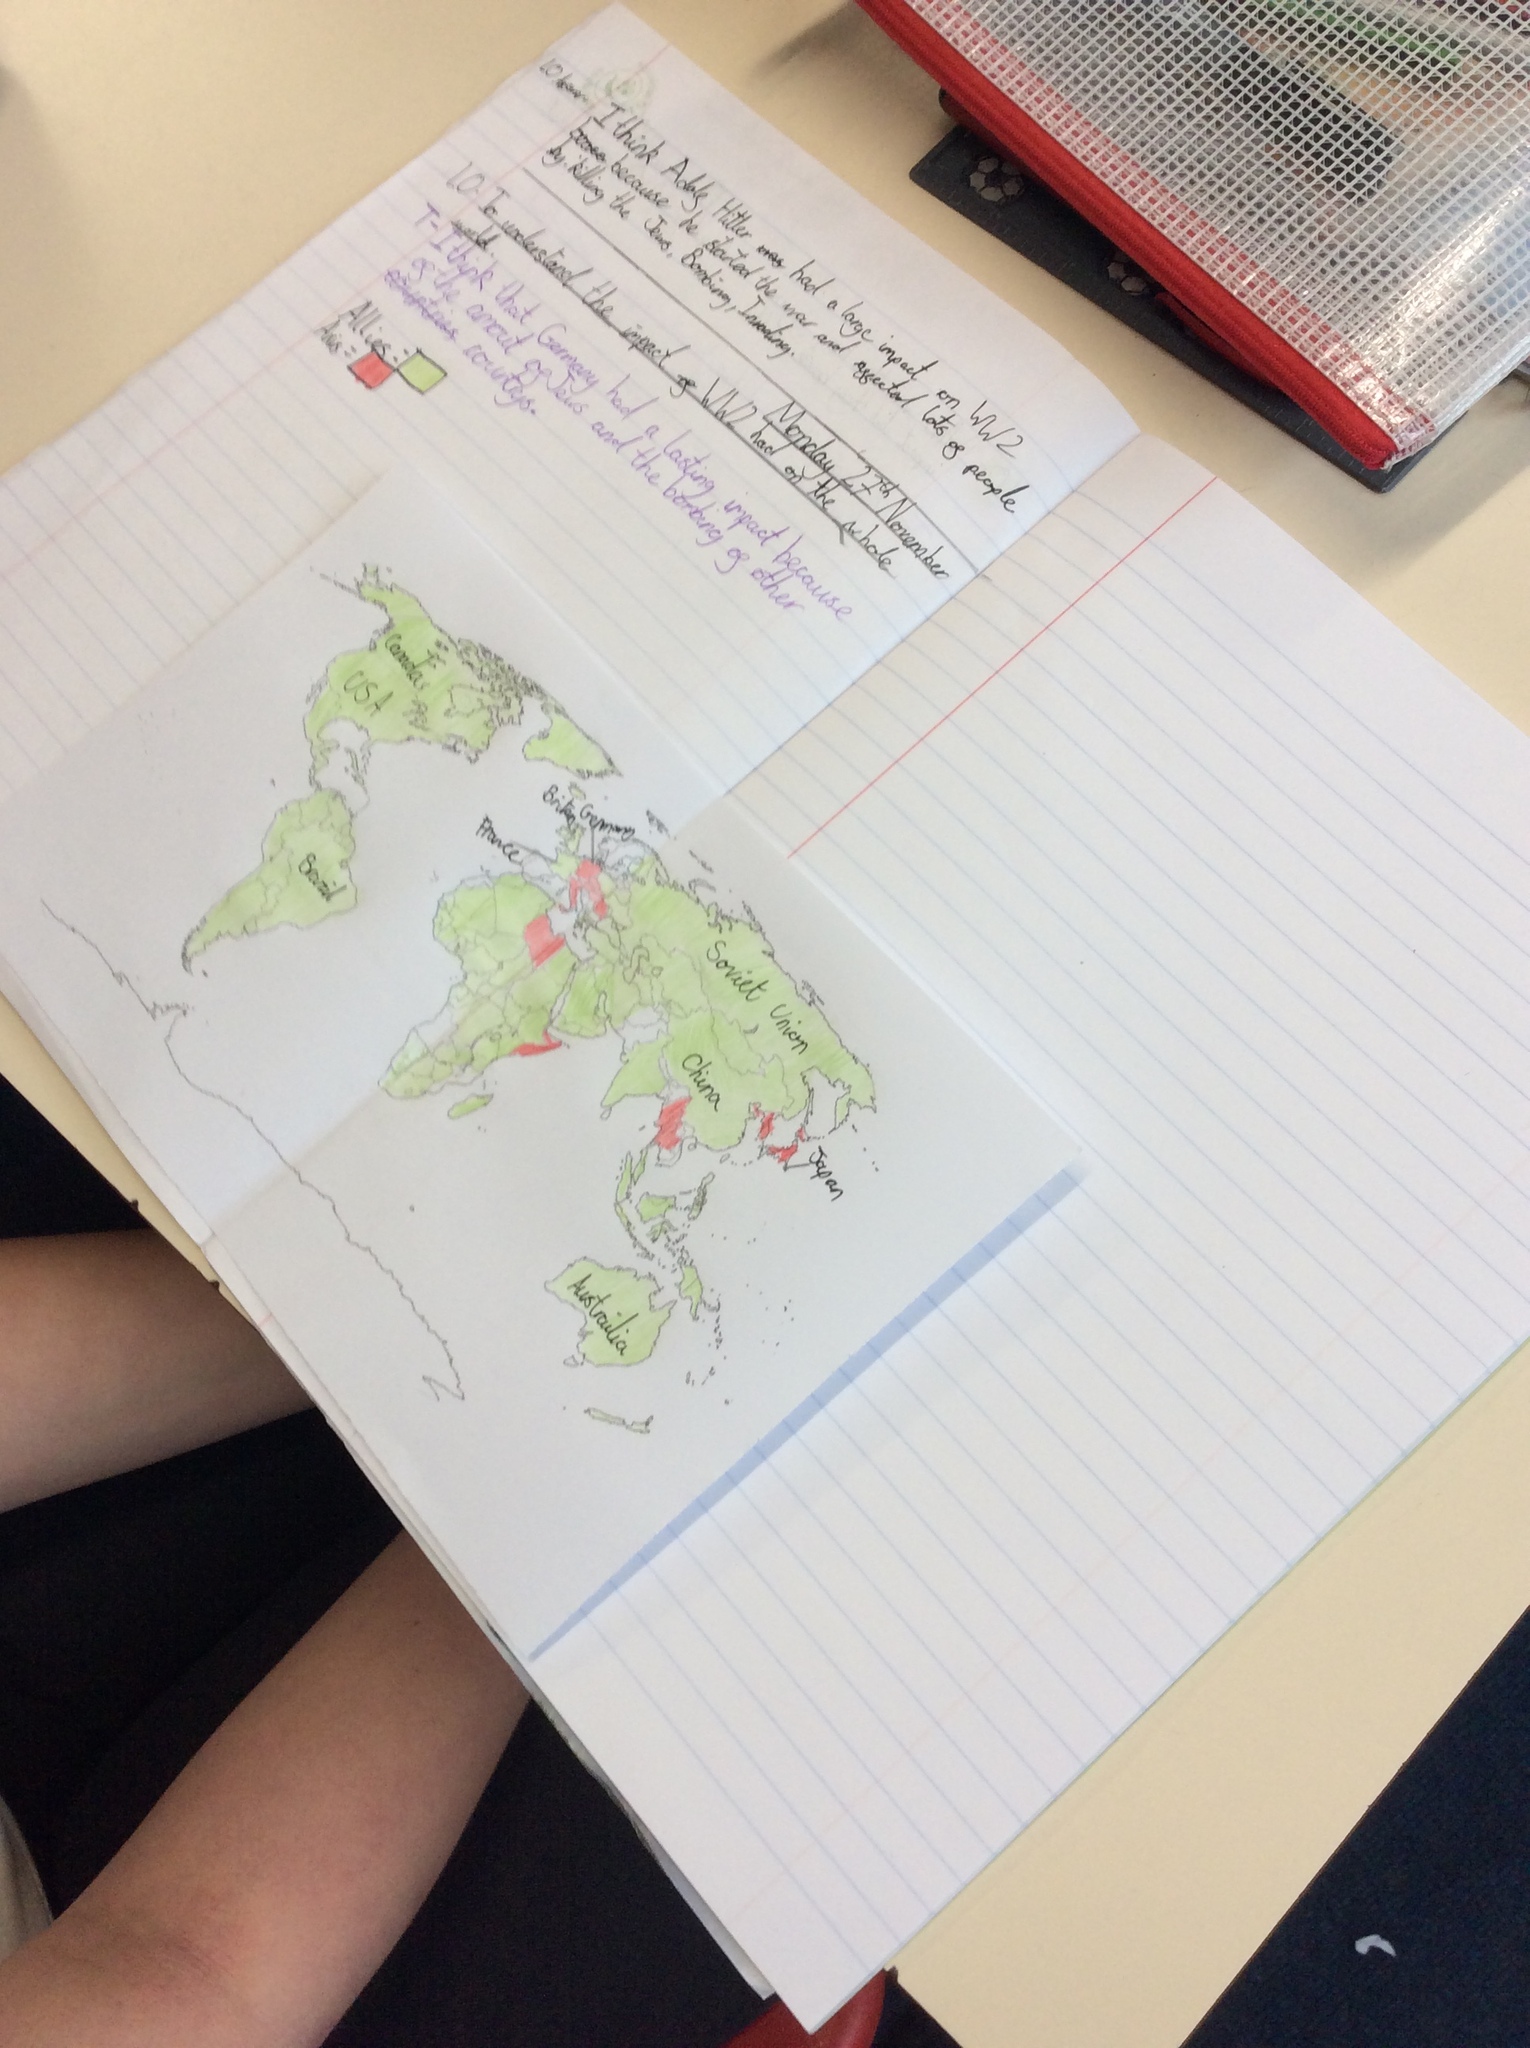 I think Adolf Hitler had a large impact on WW2
because he started the war and affected lots of people
by killing the Jews, Bombing, Invading.
Monday 27th November
L.O. To understand the impact of WW2 had on the whole
world
T-I think that Germany had a lasting impact because
of the amout of Jews and the bombing of other
countrys.
Allies =
Axis =
Canada
USA
Brazil
Britain
Germany
France
Soviet Union
China
Japan
Australia